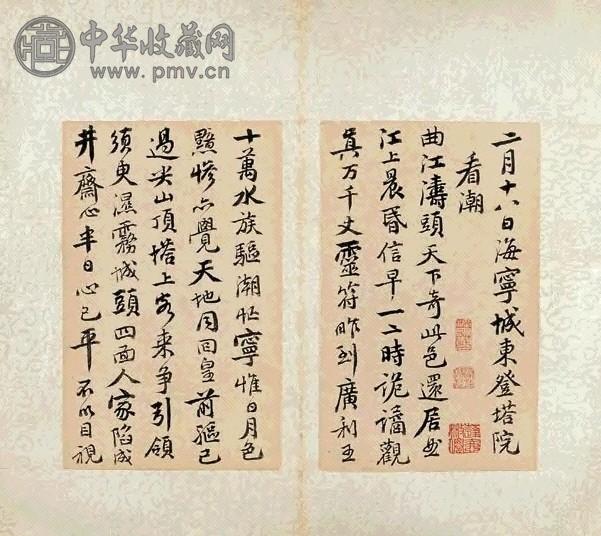 中华收藏网
www.pmv.cn
二月十八日海寧城東登塔院
看潮
曲江濤頭天下奇此邑還居
江上晨昏信早一二時詭譎觀
真万千丈靈符昨到廣利王
十萬水族驅潮忙寧惟日月色
黯慘亦覺天地同回皇前驅已
過尖山頂塔上客来争引領
須臾濕霧城頭四面人家陷成
井齋心半日心已平不以目視